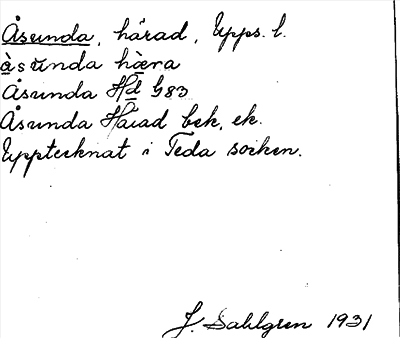 Åsunda, härad, Upps. l.
àsùnda hæra
Åsunda Hd G83
Åsunda Härad bek, ek.
Upptecknat i Teda socken.
J. Sahlgren 1931